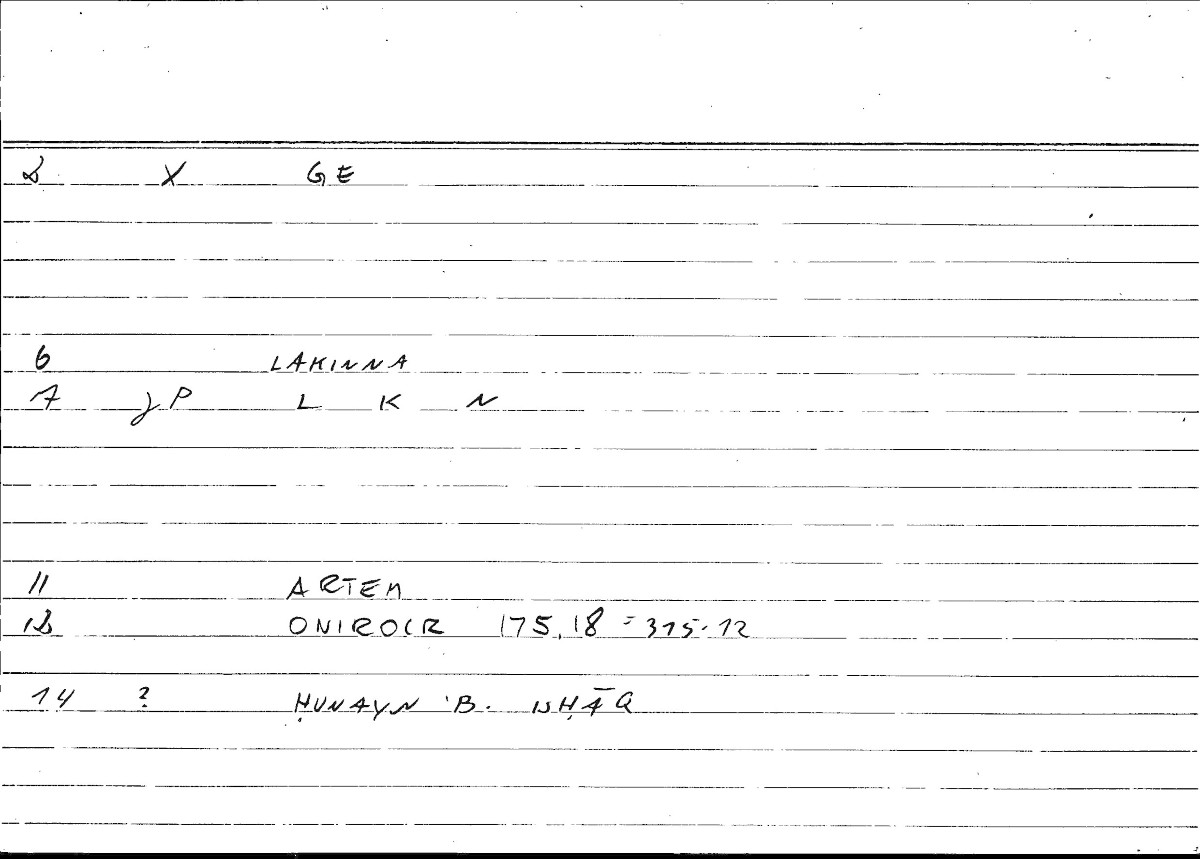 2 X GE
6 LAKINNA
7 γP L K N
11 ARTEM
12 ONIROCR 175,18 = 315.12
14 ? ḤUNAYN B. ISḤĀQ